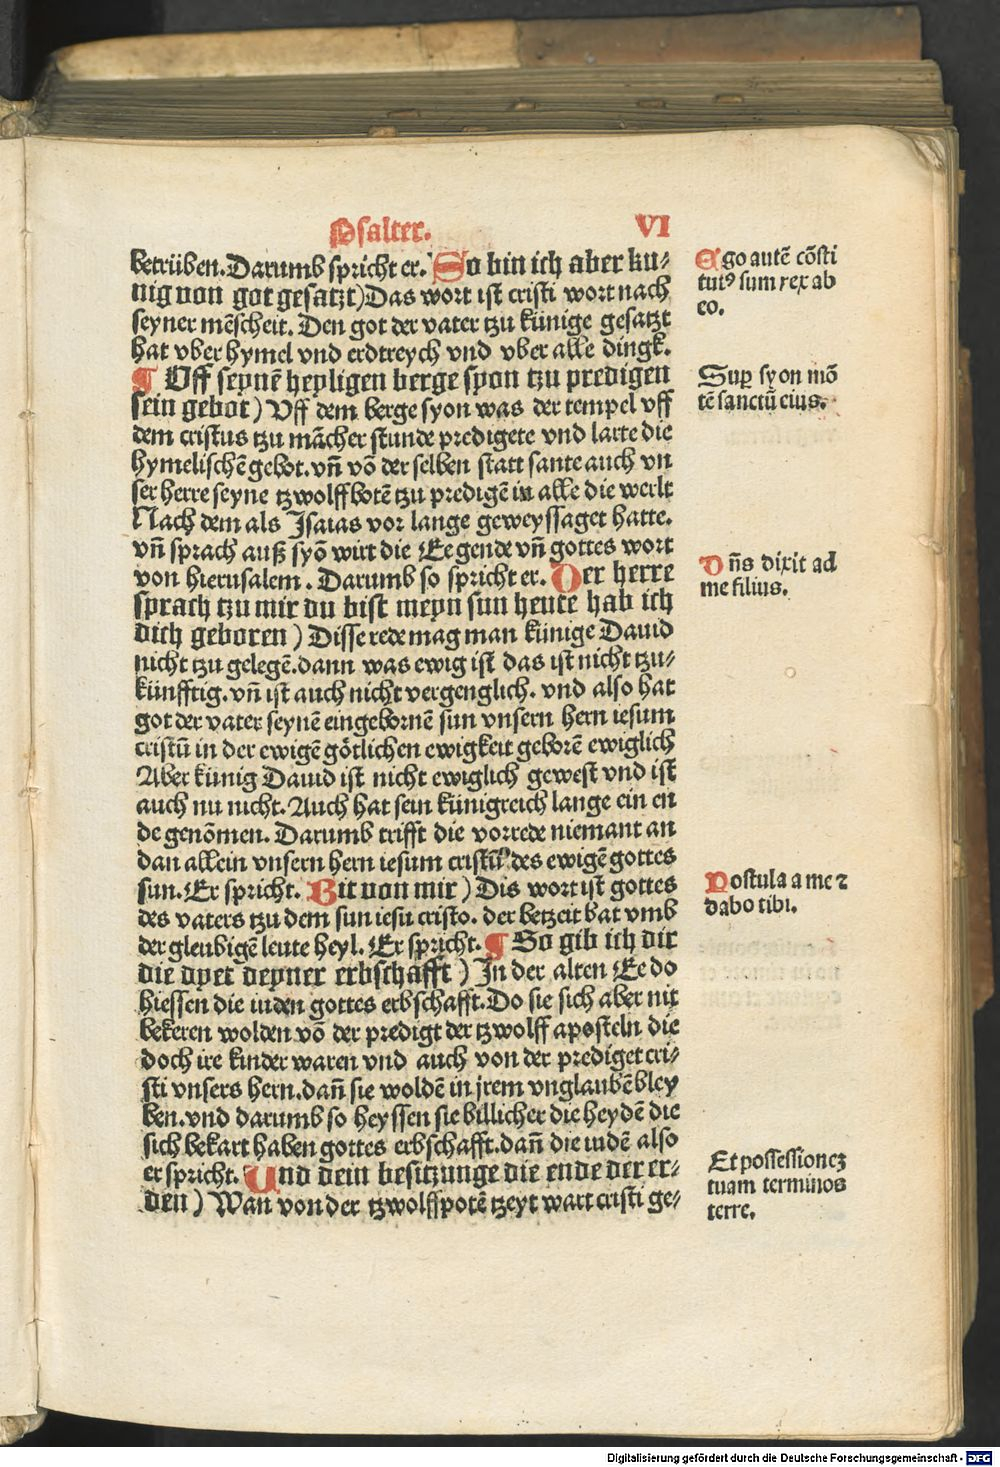 Psalter. VI
betrüben. Darumb spricht er. So bin ich aber ku⸗
nig von got gesatzt) Das wort ist cristi wort nach
seyner mēscheit. Den got der vater tzu künige gesatzt
hat vber hymel vnd erdtreych vnd vber alle dingk.
¶ Vff seynē heyligen berge syon tzu predigen
sein gebot) Vff dem berge syon was der tempel vff
dem cristus tzu mācher stunde predigete vnd larte die
hymelischē gebot. vn̄ vō der selben statt sante auch vn
ser herre seyne tzwolffbotē tzu predigē in alle die werlt
Nach dem als Jsaias vor lange geweyssaget hatte.
vn̄ sprach auß syō wirt die Ee gende vn̄ gottes wort
von hierusalem. Darumb so spricht er. Der herre
sprach tzu mir du bist meyn sun heute hab ich
dich geboren) Disse rede mag man künige Dauid
nicht tzu gelegē. dann was ewig ist das ist nicht tzu⸗
künfftig. vn̄ ist auch nicht vergenglich. vnd also hat
got der vater seynē eingebornē sun vnsern hern iesum
cristū in der ewigē götlichen ewigkeit geborē ewiglich
Aber künig Dauid ist nicht ewiglich gewest vnd ist
auch nu nicht. Auch hat sein künigreich lange ein en
de genōmen. Darumb trifft die vorrede niemant an
dan allein vnsern hern iesum cristū des ewigē gottes
sun. Er spricht. Bit von mir) Dis wort ist gottes
des vaters tzu dem sun iesu cristo. der betzeit hat vmb
der gleubigē leute heyl. Er spricht. ¶ So gib ich dir
die dyet deyner erbschafft) In der alten Ee do
hiessen die iuden gottes erbschafft. Do sie sich aber nit
bekeren wolden vō der predigt der tzwolff aposteln die
doch ire kinder waren vnd auch von der prediget cri⸗
sti vnsers hern. dan̄ sie woldē in jrem vnglaubē bley
ben. vnd darumb so heyssen sie billicher die heydē die
sich bekart haben gottes erbschafft. dan̄ die iudē also
er spricht. Und dein besitzunge die ende der er⸗
den) Wan von der tzwolffpotē tzeyt wart cristi ge⸗
Ego autē cōsti
tutꝰ sum rex ab
eo.
Suꝑ syon mō
tē sanctū eius.
Dn̄s dixit ad
me filius.
Postula a me ⁊
dabo tibi.
Et possessioneꝫ
tuam terminos
terre.
Digitalisierung gefördert durch die Deutsche Forschungsgemeinschaft - DFG